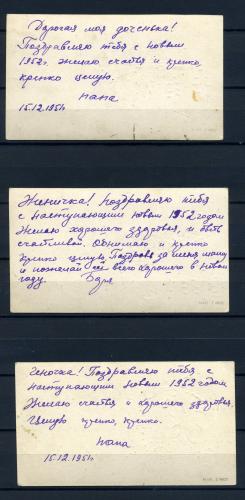 Дорогая моя доченька!
Поздравляю тебя с новым
1952г. желаю счастья и крепко,
крепко целую.
папа
15.12.1951г.
Женичка! поздравляю тебя
с наступающим новым 1952 годом
Желаю хорошего здоровья, и быть
счастливой. Обнимаю и крепко
крепко целую. Поздравь за меня маму
и пожелай ей всего хорошего в новом
году.
Геночке! Поздравляю тебя с
наступающим новым 1952 годом
Желаю счастья и хорошего здоровья.
Целую крепко, крепко.
папа
15.12.1951г.